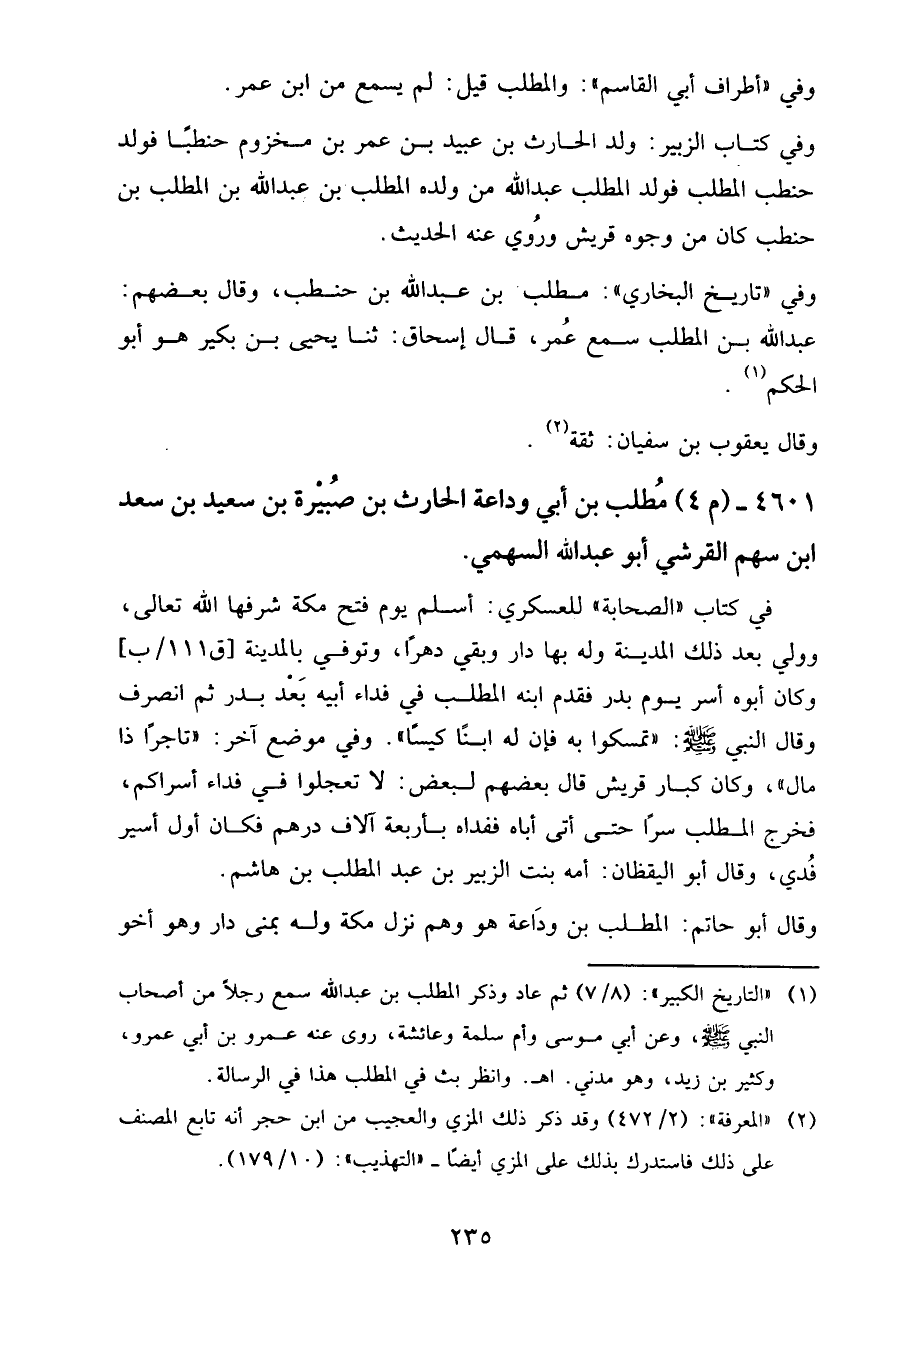 وفي «أطراف أبي القاسم»: والمطلب قيل: لم يسمع من ابن عمر.
وفي كتاب الزبير: ولد الحارث بن عبيد بن عمر بن مخزوم حنطبًا فولد
حنطب المطلب فولد المطلب عبدالله من ولده المطلب بن عبدالله بن المطلب بن
حنطب كان من وجوه قريش ورُوي عنه الحديث.
وفي «تاريخ البخاري»: مطلب بن عبدالله بن حنطب، وقال بعضهم:
عبدالله بن المطلب سمع عُمر، قال إسحاق: ثنا يحيى بن بكير هو أبو
الحكم(١) .
وقال يعقوب بن سفيان: ثقة(٢) .
٤٦٠١ ـ (م ٤) مُطلب بن أبي وداعة الحارث بن صُبيْرة بن سعيد بن سعد
ابن سهم القرشي أبو عبدالله السهمي.
في كتاب «الصحابة» للعسكري: أسلم يوم فتح مكة شرفها الله تعالى،
وولي بعد ذلك المدينة وله بها دار وبقي دهرًا، وتوفي بالمدينة [ق١١١/ب]
وكان أبوه أسر يوم بدر فقدم ابنه المطلب في فداء أبيه بَعْد بدر ثم انصرف
وقال النبي ﷺ: «تمسكوا به فإن له ابنًا كيسًا». وفي موضع آخر: «تاجرًا ذا
مال»، وكان كبار قريش قال بعضهم لبعض: لا تعجلوا في فداء أسراكم،
فخرج المطلب سرًا حتى أتى أباه ففداه بأربعة آلاف درهم فكان أول أسير
فُدي، وقال أبو اليقظان: أمه بنت الزبير بن عبد المطلب بن هاشم.
وقال أبو حاتم: المطلب بن ودَاعة هو وهم نزل مكة وله بمنى دار وهو أخو
(١) «التاريخ الكبير»: (٧/٨) ثم عاد وذكر المطلب بن عبدالله سمع رجلاً من أصحاب
النبي ﷺ، وعن أبي موسى وأم سلمة وعائشة، روى عنه عمرو بن أبي عمرو،
وكثير بن زيد، وهو مدني. اهـ. وانظر بث في المطلب هذا في الرسالة.
(٢) «المعرفة»: (٤٧٢/٢) وقد ذكر ذلك المزي والعجيب من ابن حجر أنه تابع المصنف
على ذلك فاستدرك بذلك على المزي أيضًا ـ «التهذيب»: (١٧٩/١٠).
٢٣٥